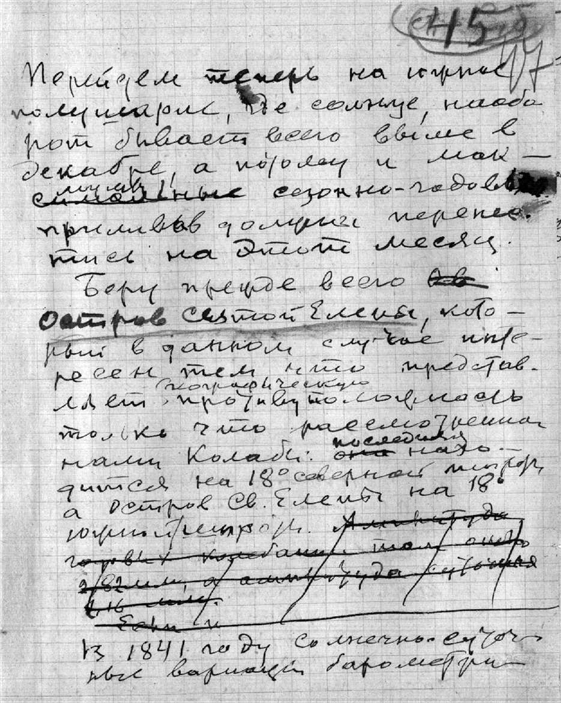 45
107
Перейдем теперь на южное
полушарие, где солнце, наобо
рот бывает всего выше в
декабре, а потому и мак—
симум сезонно-годов
приливов должен перенес
тись на этот месяц.
Беру прежде всего
Остров Святой Елены, кото—
рый в данном случае инте—
ресен тем что представ—
ляет географическую противуположность
только что рассмотренной
нами Колабы: последняя нахо—
дится на 18° северной широты
а остров Св. Елены на 18°
южной широты. Амплитуда
колебаний там
2,82 мм, а амплитуда суточная
мм.
Если
В 1841 году солнечно-суточ—
ных вариаций барометри—